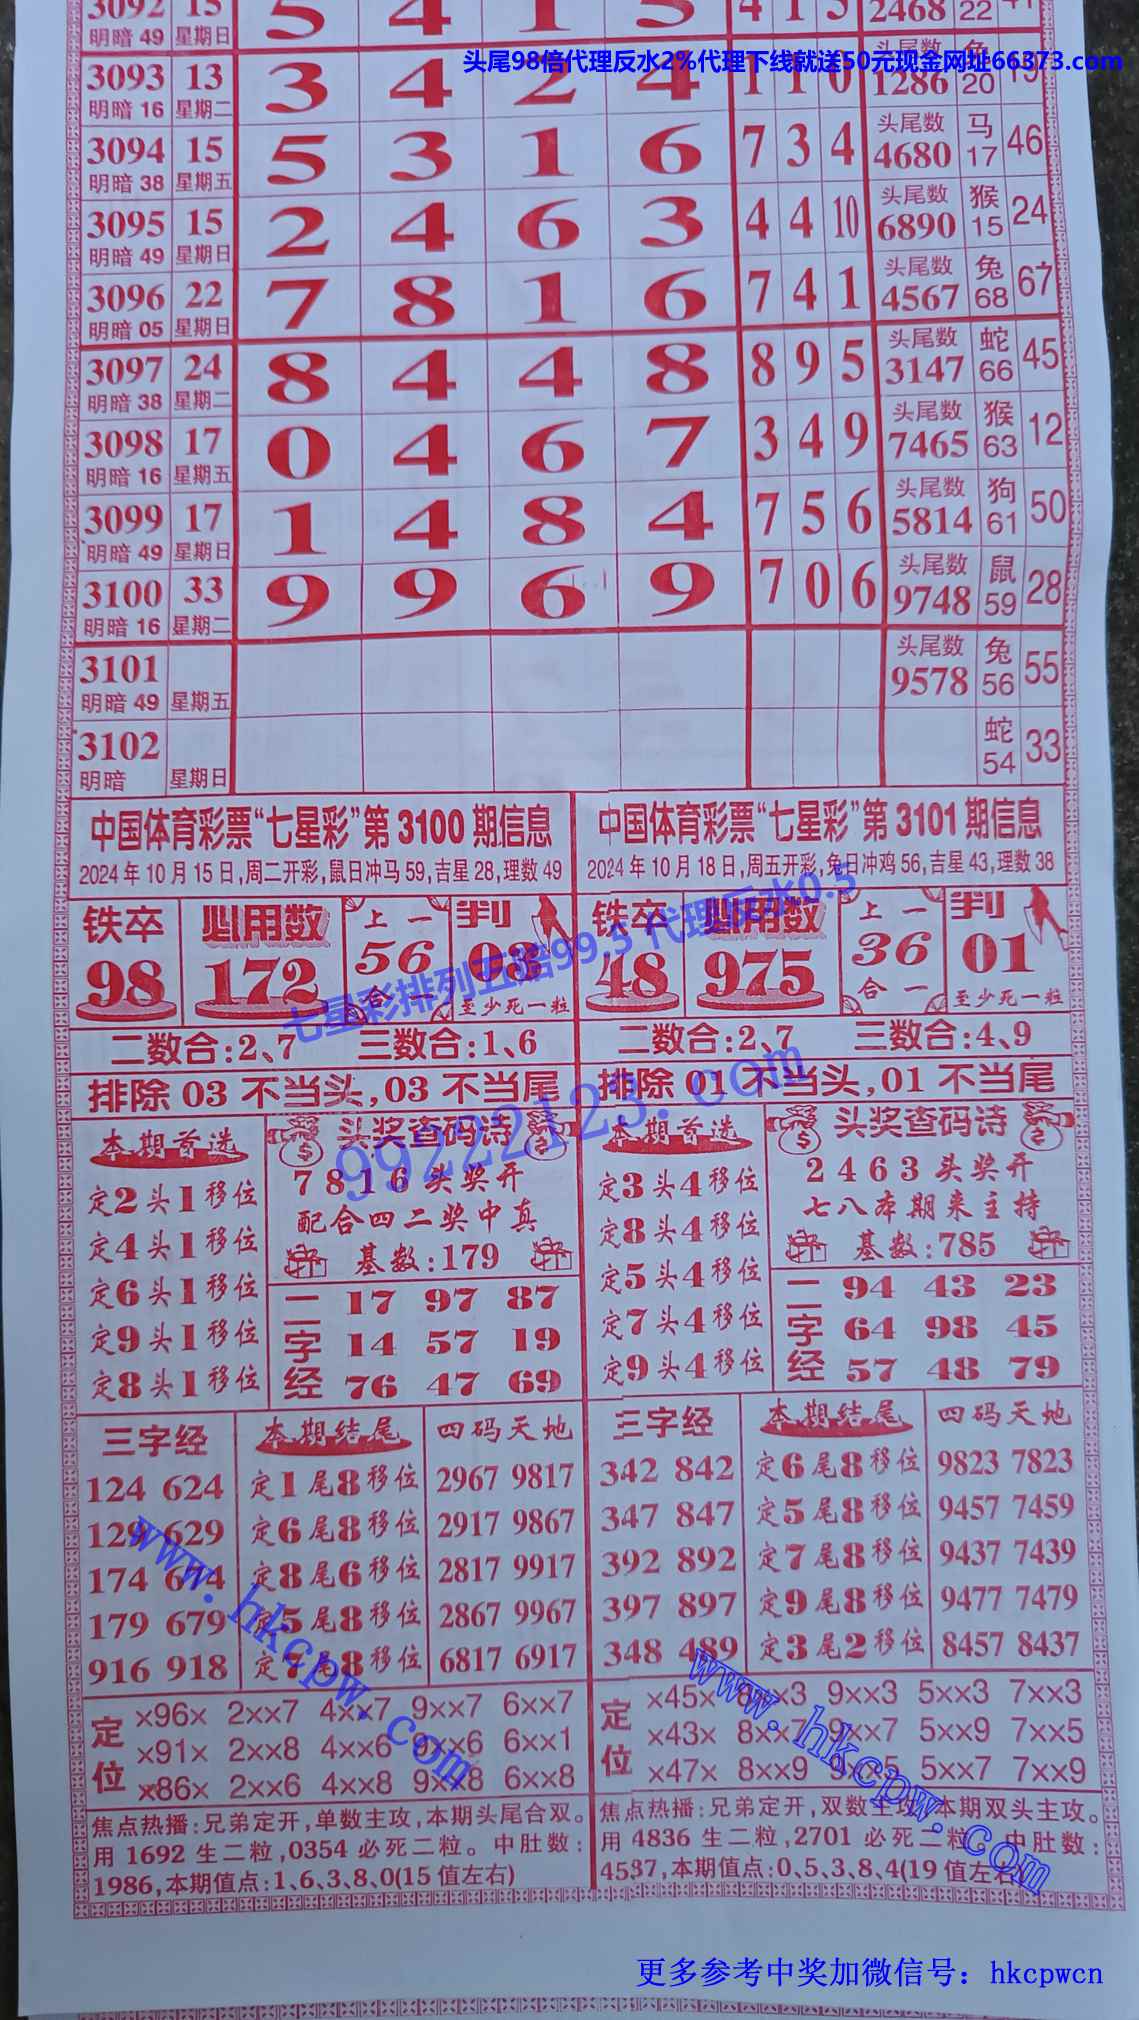 3092 15 5 4 1 5 4 1 5 2468 22
明暗 49 星期日
头尾98倍代理反水2%代理下线就送50元现金网址66373.com
3093 13 3 4 2 4 1 1 0 头尾数 1286 兔 20 19
明暗 16 星期二
3094 15 5 3 1 6 7 3 4 头尾数 4680 马 17 46
明暗 38 星期五
3095 15 2 4 6 3 4 4 10 头尾数 6890 猴 15 24
明暗 49 星期日
3096 22 7 8 1 6 7 4 1 头尾数 4567 兔 68 67
明暗 05 星期日
3097 24 8 4 4 8 8 9 5 头尾数 3147 蛇 66 45
明暗 38 星期二
3098 17 0 4 6 7 3 4 9 头尾数 7465 猴 63 12
明暗 16 星期五
3099 17 1 4 8 4 7 5 6 头尾数 5814 狗 61 50
明暗 49 星期日
3100 33 9 9 6 9 7 0 6 头尾数 9748 鼠 59 28
明暗 16 星期二
3101 头尾数 9578 兔 56 55
明暗 49 星期五
3102 蛇 54 33
明暗 星期日
中国体育彩票“七星彩”第 3100 期信息
2024 年 10 月 15 日,周二开彩,鼠日冲马 59,吉星 28,理数 49
铁卒 98
必用数 172
上一 56 合一
判 03 至少死一粒
二数合:2、7 三数合:1、6
排除 03 不当头,03 不当尾
本期首选
定2头1移位
定4头1移位
定6头1移位
定9头1移位
定8头1移位
头奖查码诗
7 8 1 6 头奖开
配合四二奖中真
基数:179
二字经
17 97 87
14 57 19
76 47 69
三字经
124 624
129 629
174 674
179 679
916 918
本期结尾
定1尾8移位
定6尾8移位
定8尾6移位
定5尾8移位
定7尾8移位
四码天地
2967 9817
2917 9867
2817 9917
2867 9967
6817 6917
定位
×96× 2××7 4××7 9××7 6××7
×91× 2××8 4××6 9××6 6××1
×86× 2××6 4××8 9××8 6××8
焦点热播:兄弟定开,单数主攻,本期头尾合双。
用 1692 生二粒,0354 必死二粒。中肚数:
1986,本期值点:1、6、3、8、0(15 值左右)
中国体育彩票“七星彩”第 3101 期信息
2024 年 10 月 18 日,周五开彩,兔日冲鸡 56,吉星 43,理数 38
铁卒 48
必用数 975
上一 36 合一
判 01 至少死一粒
二数合:2、7 三数合:4、9
排除 01 不当头,01 不当尾
本期首选
定3头4移位
定8头4移位
定5头4移位
定7头4移位
定9头4移位
头奖查码诗
2 4 6 3 头奖开
七八本期来主持
基数:785
二字经
94 43 23
64 98 45
57 48 79
三字经
342 842
347 847
392 892
397 897
348 489
本期结尾
定6尾8移位
定5尾8移位
定7尾8移位
定9尾8移位
定3尾2移位
四码天地
9823 7823
9457 7459
9437 7439
9477 7479
8457 8437
定位
×45× 8××3 9××3 5××3 7××3
×43× 8××7 9××7 5××9 7××5
×47× 8××9 9××5 5××7 7××9
焦点热播:兄弟定开,双数主攻,本期双头主攻。
用 4836 生二粒,2701 必死二粒。中肚数:
4537,本期值点:0、5、3、8、4(19 值左右)
七星彩排列五赔99.5 代理反水0.5
99222123.com
www.hkcpw.com
www.hkcpw.com
更多参考中奖加微信号：hkcpwcn